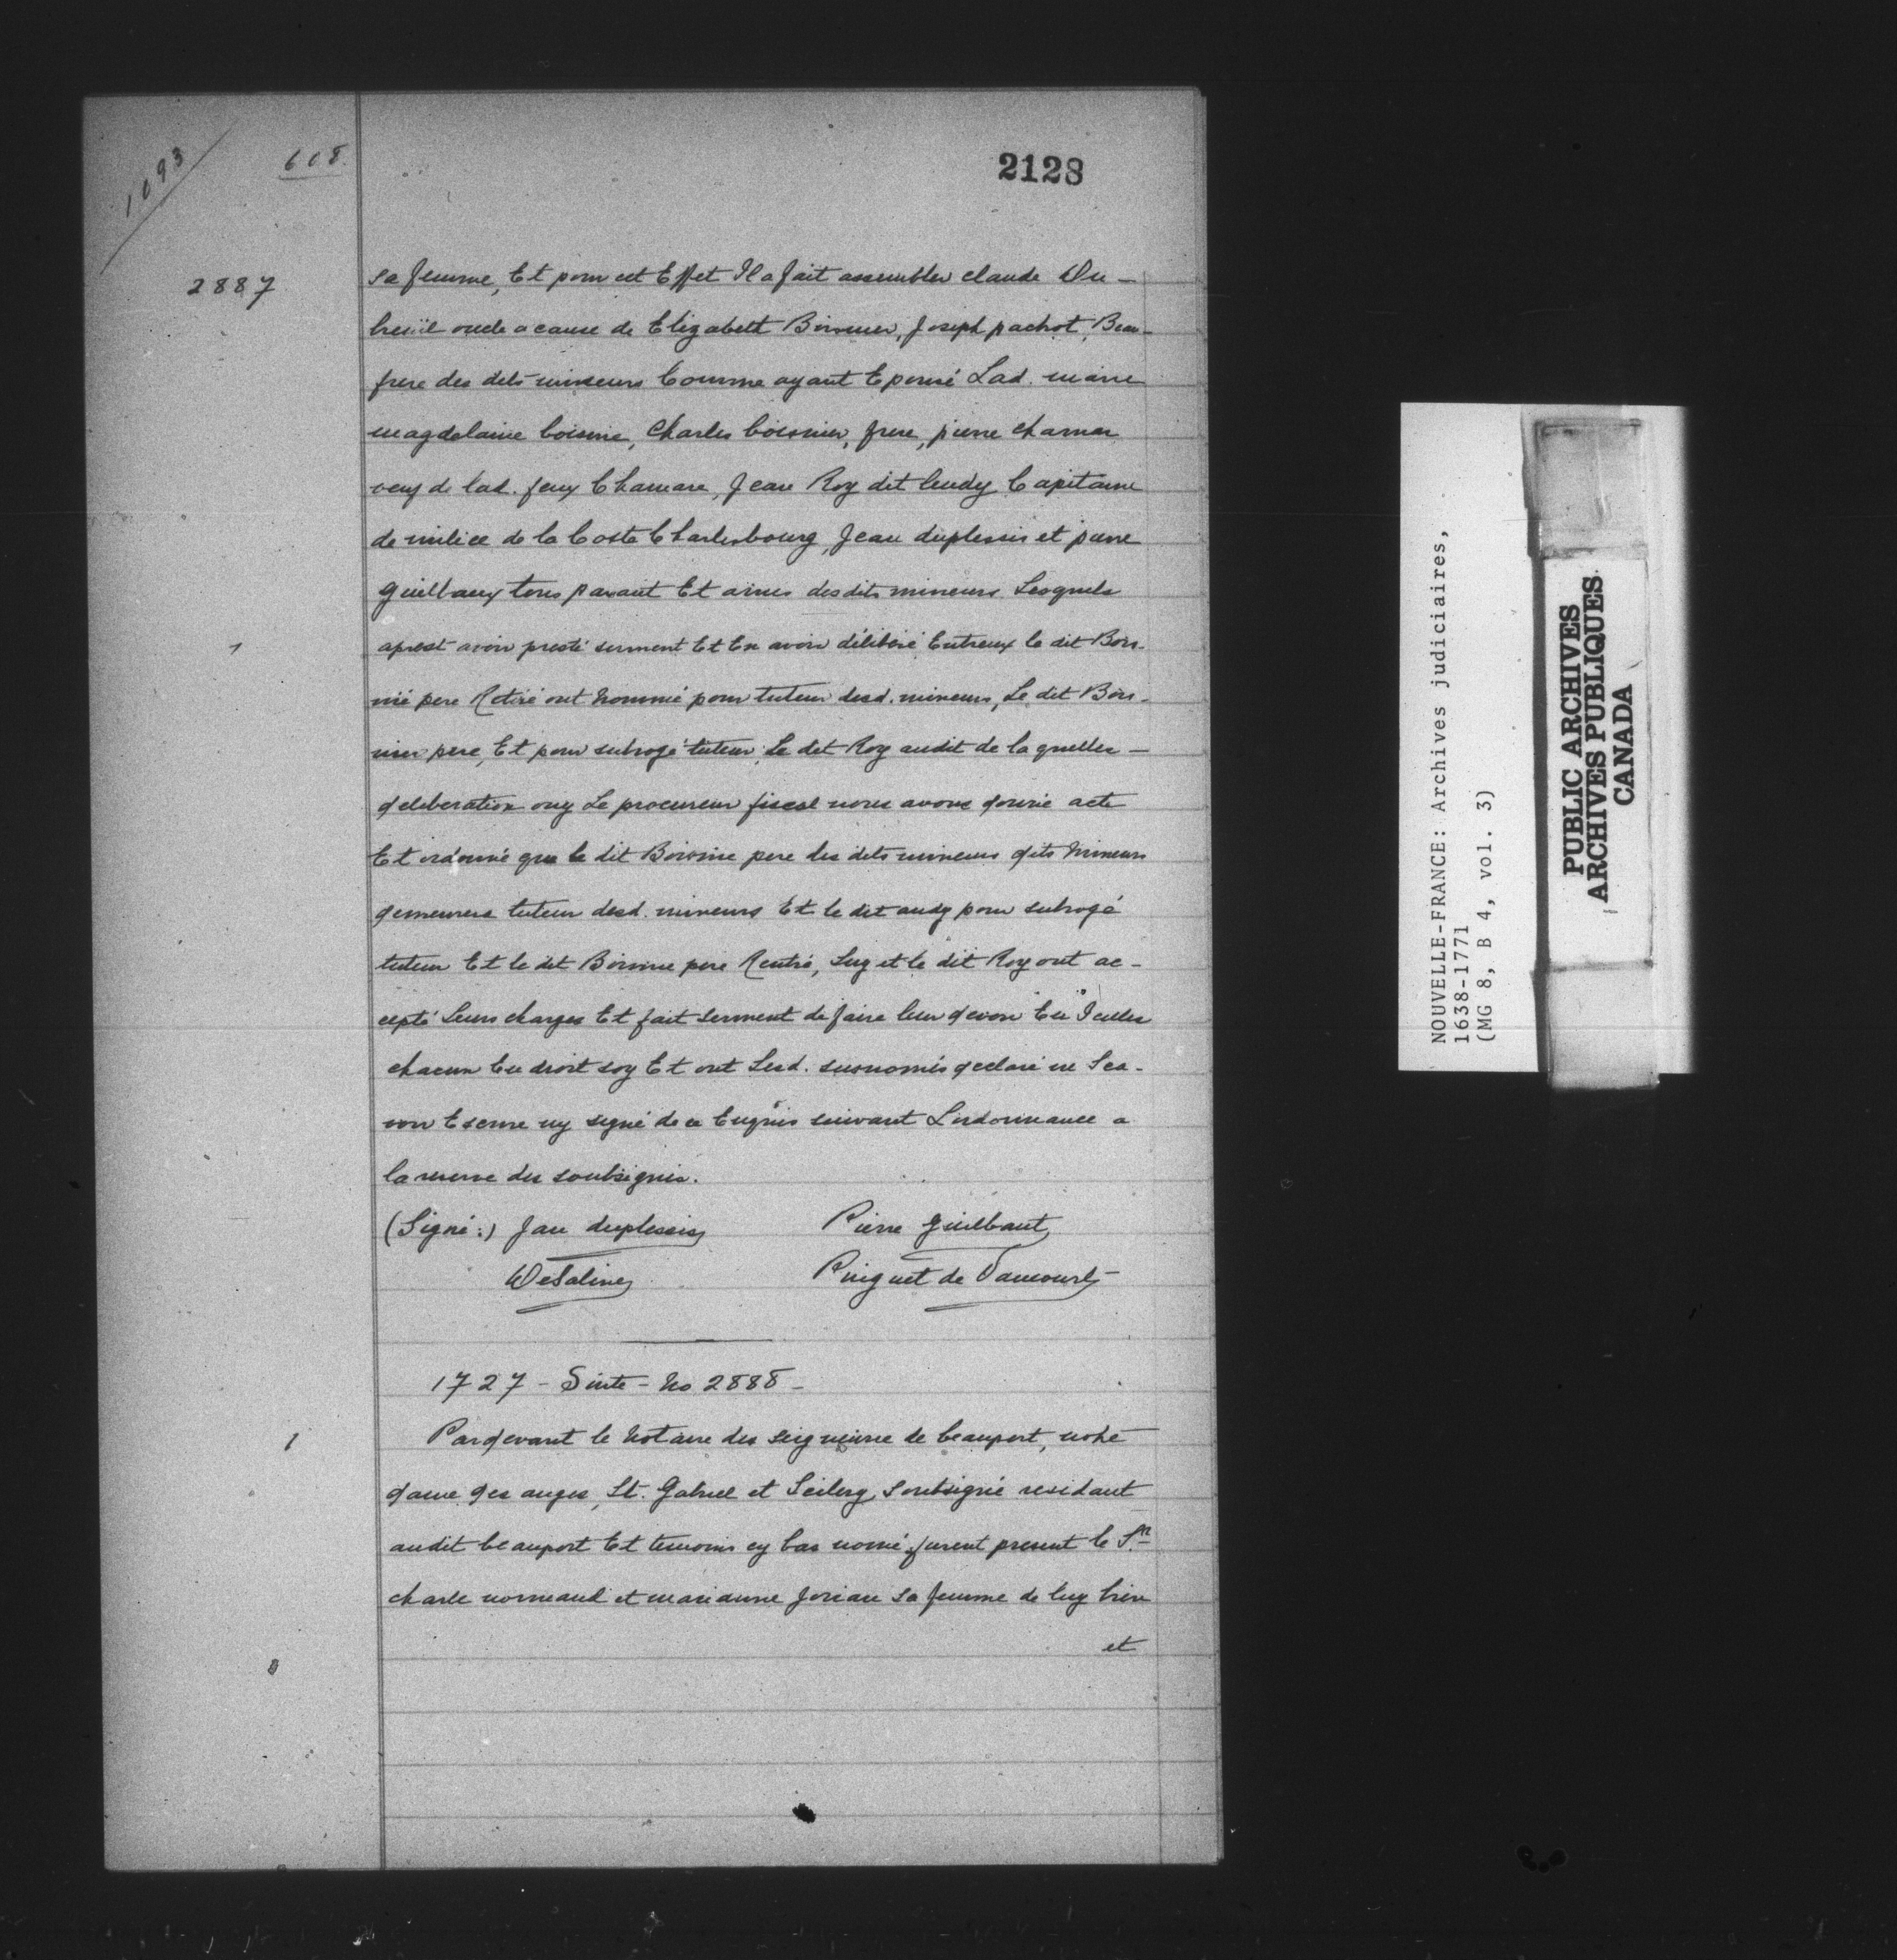 1093
608.
2128
2887
sa femme, Et pour cet Effet Il a fait assembler claude Du-
breüil oncle a cause de Elizabett Boismier, Joseph pachot, Beau-
frere des dits mineurs Comme ayant Epousé Lad. marie
magdelaine boisme, Charles boismier, frere, pierre
veuf de lad. feux Chamare, Jean Roy dit laudy Capitaine
de milice de la Coste Charlesbourg, Jean duplessis et pierre
guilbaux tous parant Et amis desdits mineurs Lesquels
aprest avoir presté serment Et En avoir délibéré Entreux le dit Bois-
mié pere Retiré ont nommé pour tuteur desd. mineurs, Le dit Bois-
mier pere, Et pour subrogé tuteur, Le dit Roy audit de laquelles -
deliberation ouy Le procureur fiscal nous avons donné acte
Et ordonné que le dit Boismie pere des dits mineurs dits mineurs
demeurera tuteur desd. mineurs Et le dit audy pour subrogé
tuteur Et le dit Boismie pere Rentré, Luy et le dit Roy ont ac-
cepté Leurs charges Et fait serment de faire leur devoir En Icelles
chacun En droit soy Et ont Lesd. susnomés declaré ne Sca-
voir Escrire ny signé de ce Enquis suivant Lordonnance a
la reserve des soubsignés.
(Signé:) Jan duplessis Pierre guilbaut
DeSaline Puiguet de Vancourt
1727 - Suite - No 2888 -
1
1
Pardevant le Notaire des seigneurie de beauport, notre
dame des anges, St. Gabriel et Scilery Soubsigné residant
audit beauport Et temoins cy bas nomé, furent present le Sr.
charle normand et marianne joriau sa femme de luy bien
et
NOUVELLE-FRANCE: Archives judiciaires,
1638-1771
(MG 8, B 4, vol. 3)
PUBLIC ARCHIVES
ARCHIVES PUBLIQUES
CANADA